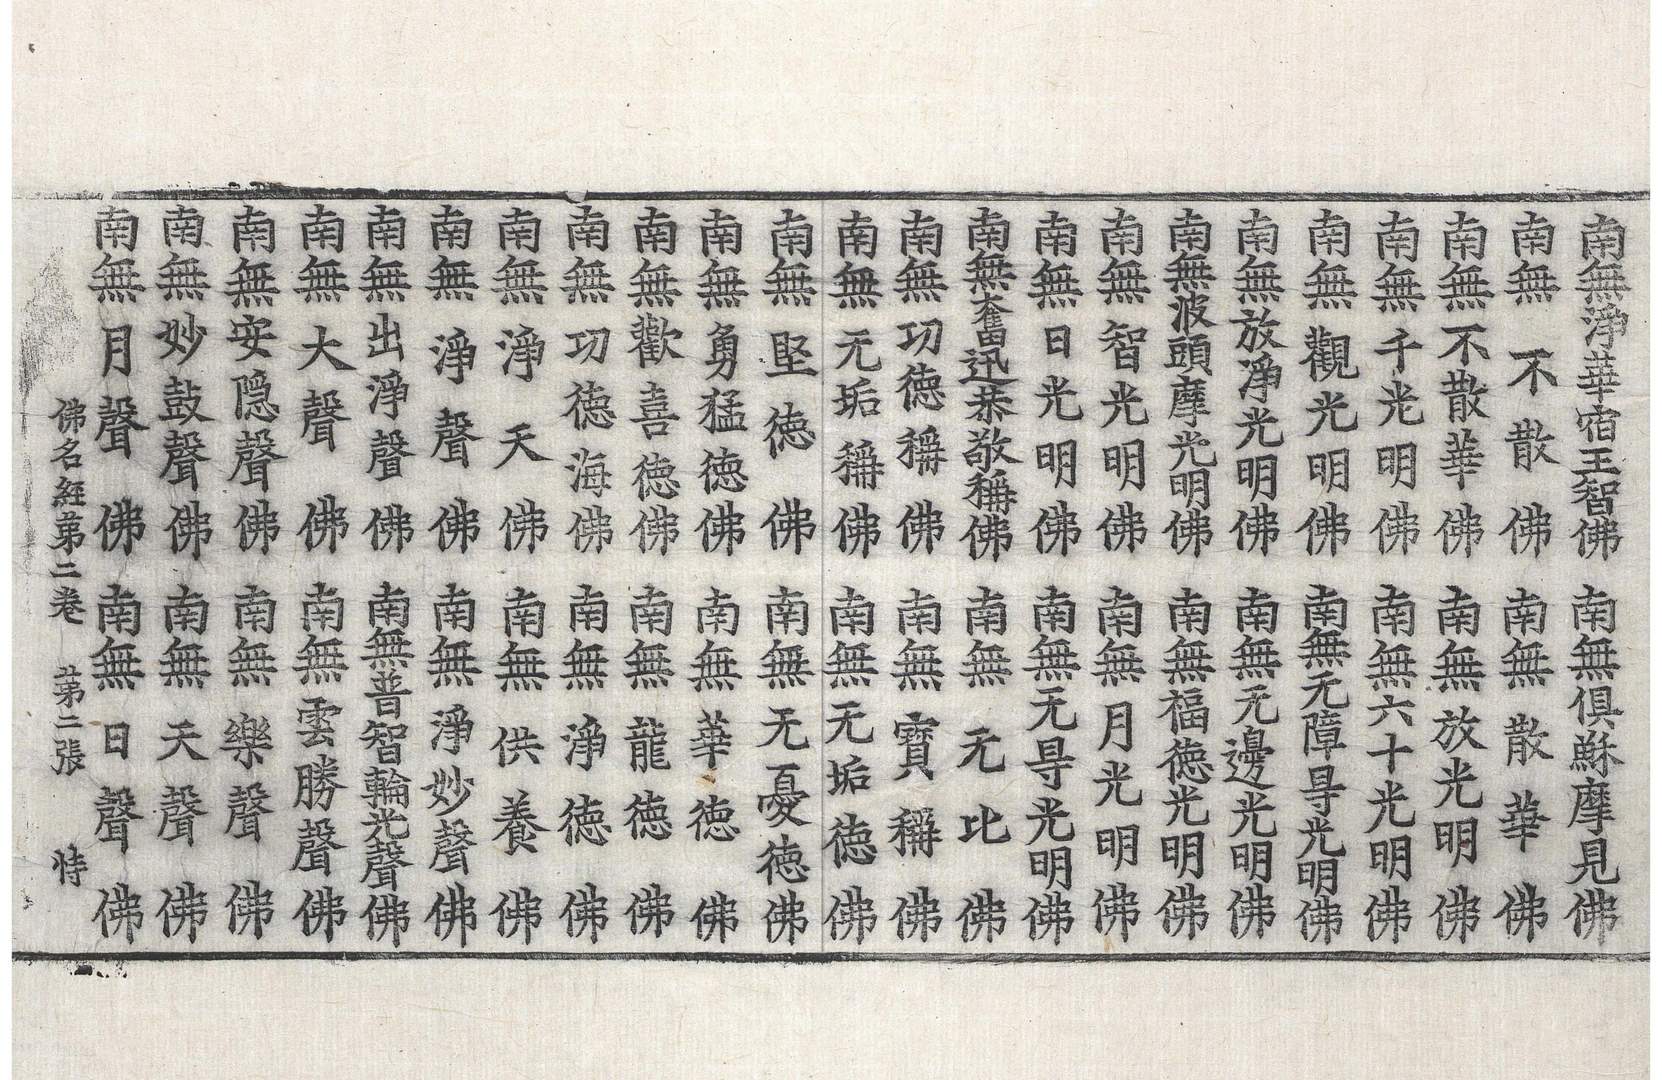 南無淨華宿王智佛　南無俱蘇摩見佛
南無不散佛　南無散華佛
南無不散華佛　南無放光明佛
南無千光明佛　南無六十光明佛
南無觀光明佛　南無无障㝵光明佛
南無放淨光明佛　南無无邊光明佛
南無波頭摩光明佛　南無福德光明佛
南無智光明佛　南無月光明佛
南無日光明佛　南無无㝵光明佛
南無奮迅恭敬稱佛　南無无比佛
南無功德稱佛　南無寶稱佛
南無无垢稱佛　南無无垢德佛
南無堅德佛　南無无憂德佛
南無勇猛德佛　南無華德佛
南無歡喜德佛　南無龍德佛
南無功德海佛　南無淨德佛
南無淨天佛　南無供養佛
南無淨聲佛　南無淨妙聲佛
南無出淨聲佛　南無普智輪光聲佛
南無大聲佛　南無雲勝聲佛
南無安隱聲佛　南無樂聲佛
南無妙鼓聲佛　南無天聲佛
南無月聲佛　南無日聲佛
佛名經第二卷　第二張　恃